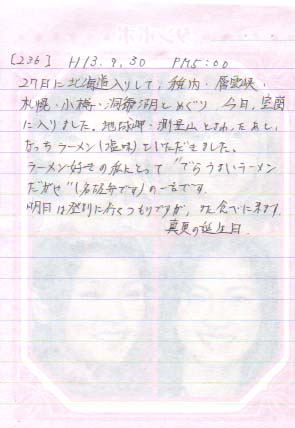 [236] H13.9.30 PM5:00
27日に北海道入りして、稚内・層雲峡・
札幌・小樽・洞爺湖とめぐり、今日、室蘭
に入りました。地球岬・測量山とまわったあと、
なっちラーメン(塩味)をいただきました。
ラーメン好きの私にとって"でらうまいラーメン
だがや"(名古屋弁です)の一言です。
明日は登別に行くつもりですが、また食べに来ます。
真夏の誕生日